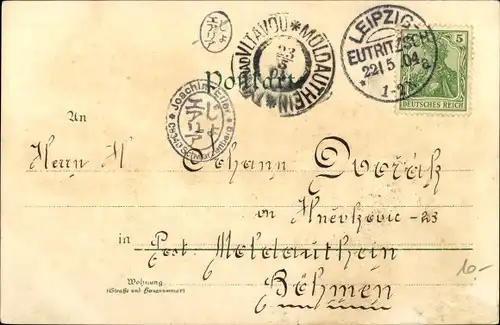 LEIPZIG-
EUTRITZSCH
22/5 04
a
1-2
5
DEUTSCHES REICH
VLTAVOU * MOLDAUTHEIN
23
5
Postkarte
Joachim Erler
An
Herrn H
Johann Dvořák
in
Post. Moldauthein
Böhmen
Wohnung
(Straße und Hausnummer)
10.-